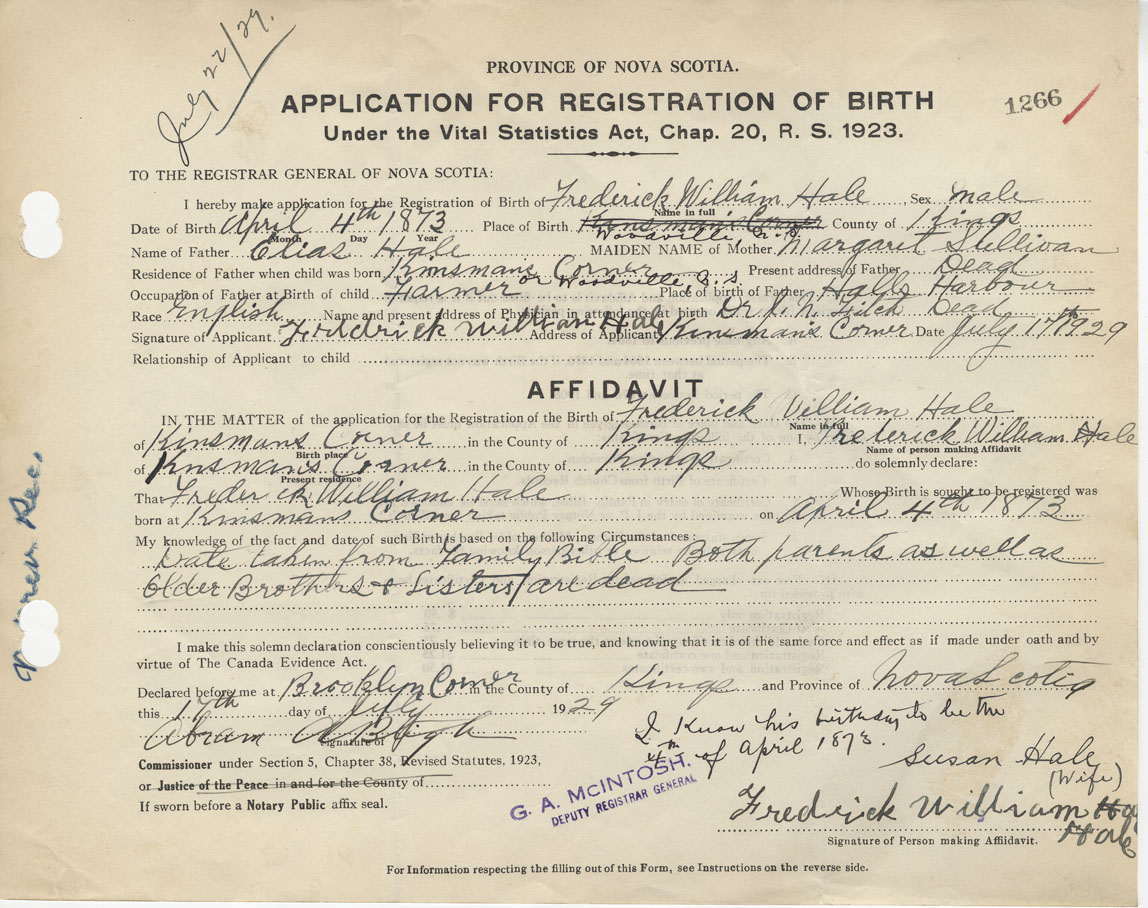 July 22/29.
PROVINCE OF NOVA SCOTIA.
APPLICATION FOR REGISTRATION OF BIRTH
1266
Under the Vital Statistics Act, Chap. 20, R. S. 1923.
TO THE REGISTRAR GENERAL OF NOVA SCOTIA:
I hereby make application for the Registration of Birth of Frederick William Hale Sex male
Name in full
Date of Birth April 4th 1873 Place of Birth Kinsman's Corner Woodville N.S. County of Kings
Month Day Year
Name of Father Elias Hale MAIDEN NAME of Mother Margaret Sullivan
Residence of Father when child was born Kinsmans Corner Present address of Father Dead
or Woodville, N.S.
Occupation of Father at Birth of child Farmer Place of birth of Father Halls Harbour
Race English Name and present address of Physician in attendance at birth Dr Fitch Dead
Signature of Applicant Frederick William Hale Address of Applicant Kinsman's Corner Date July 17th 1929
Relationship of Applicant to child
AFFIDAVIT
IN THE MATTER of the application for the Registration of the Birth of Frederick William Hale
Name in full
of Kinsmans Corner in the County of Kings I, Frederick William Hale
Birth place Name of person making Affidavit
of Kinsman's Corner in the County of Kings do solemnly declare:
Present residence
That Frederick William Hale Whose Birth is sought to be registered was
born at Kinsmans Corner on April 4th 1873
My knowledge of the fact and date of such Birth is based on the following Circumstances:
Date taken from Family Bible Both parents as well as
Older Brothers & Sisters are dead
I make this solemn declaration conscientiously believing it to be true, and knowing that it is of the same force and effect as if made under oath and by
virtue of The Canada Evidence Act.
Declared before me at Brooklyn Corner in the County of Kings and Province of Nova Scotia
this 17th day of July 1929
Abram
Signature of
I know his birthday to be the
4th of April 1873.
Susan Hale
(Wife)
Commissioner under Section 5, Chapter 38, Revised Statutes, 1923,
or Justice of the Peace in and for the County of
If sworn before a Notary Public affix seal.
G. A. McINTOSH.
DEPUTY REGISTRAR GENERAL
Frederick William Ha
Hale
Signature of Person making Affidavit.
For Information respecting the filling out of this Form, see Instructions on the reverse side.